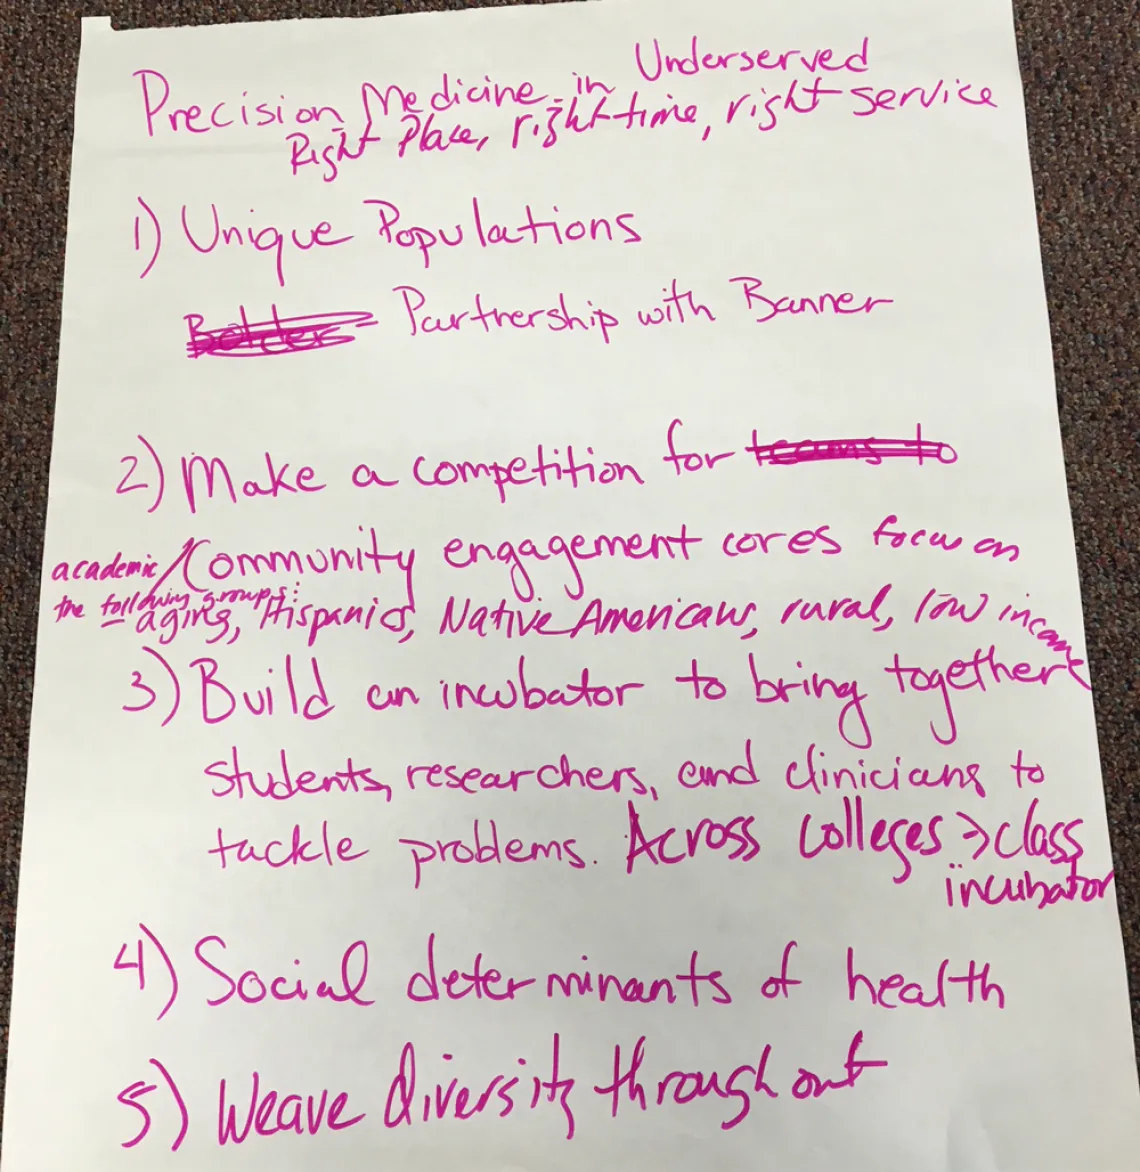 Precision Medicine in Underserved
Right Place, right time, right service
1) Unique Populations
Border Partnership with Banner
2) Make a competition for teams to
academic/Community engagement cores focus on
the following groups:
aging, Hispanic, Native Americans, rural, low income
3) Build an incubator to bring together
students, researchers, and clinicians to
tackle problems. Across Colleges → class
incubator
4) Social determinants of health
5) Weave diversity throughout